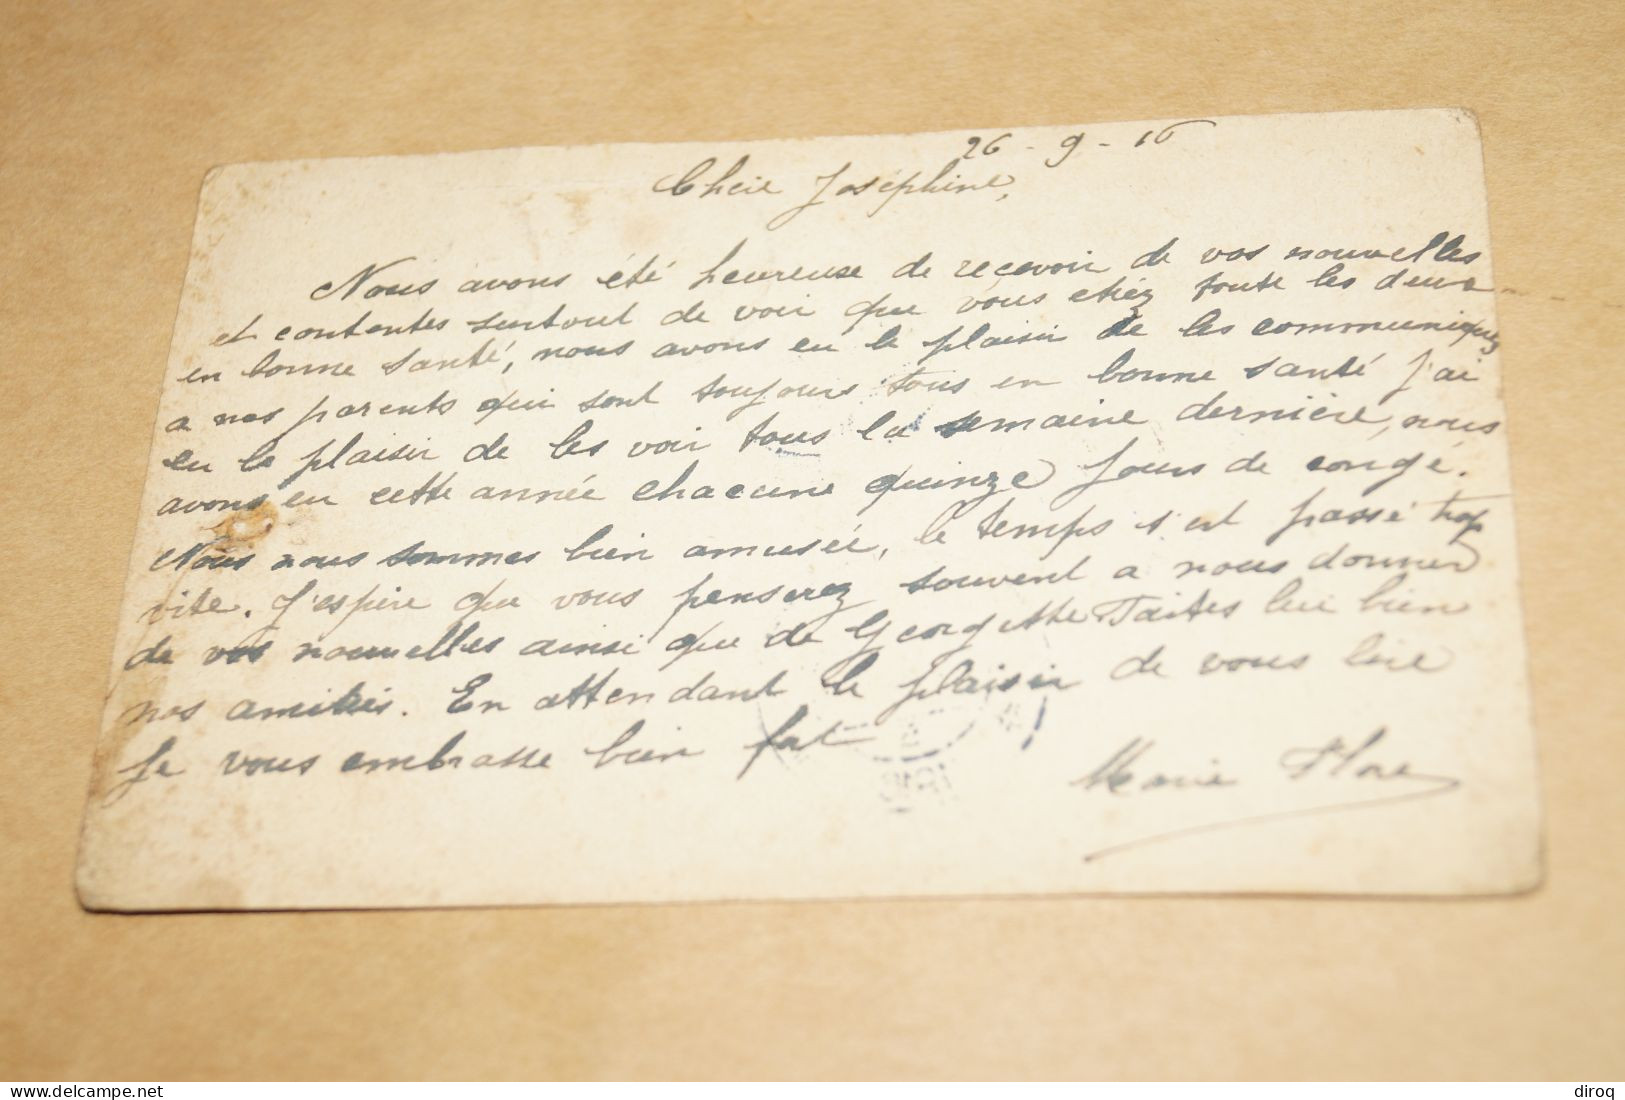 26 - 9 - 16
Cheie Joséphine,
Nous avons été heureuse de recevoir de vos nouvelles
et contentes surtout de voir que vous etiéz toute les deux
en bonne santé, nous avons eu le plaisir de les communiquez
a nos parents qui sont toujours tous en bonne santé J'ai
eu le plaisir de les voir tous la semaine dernière, nous
avons eu cette année chacune quinze jours de congé.
Nous nous sommes bien amusée, le temps s'est passé trop
vite. J'espère que vous penserez souvent a nous donner
de vos nouvelles ainsi que de Georgette Faites lui bien
nos amitiés. En attendant le plaisir de vous lire
Je vous embrasse bien fort
Marie Flore
www.delcampe.net
diroq